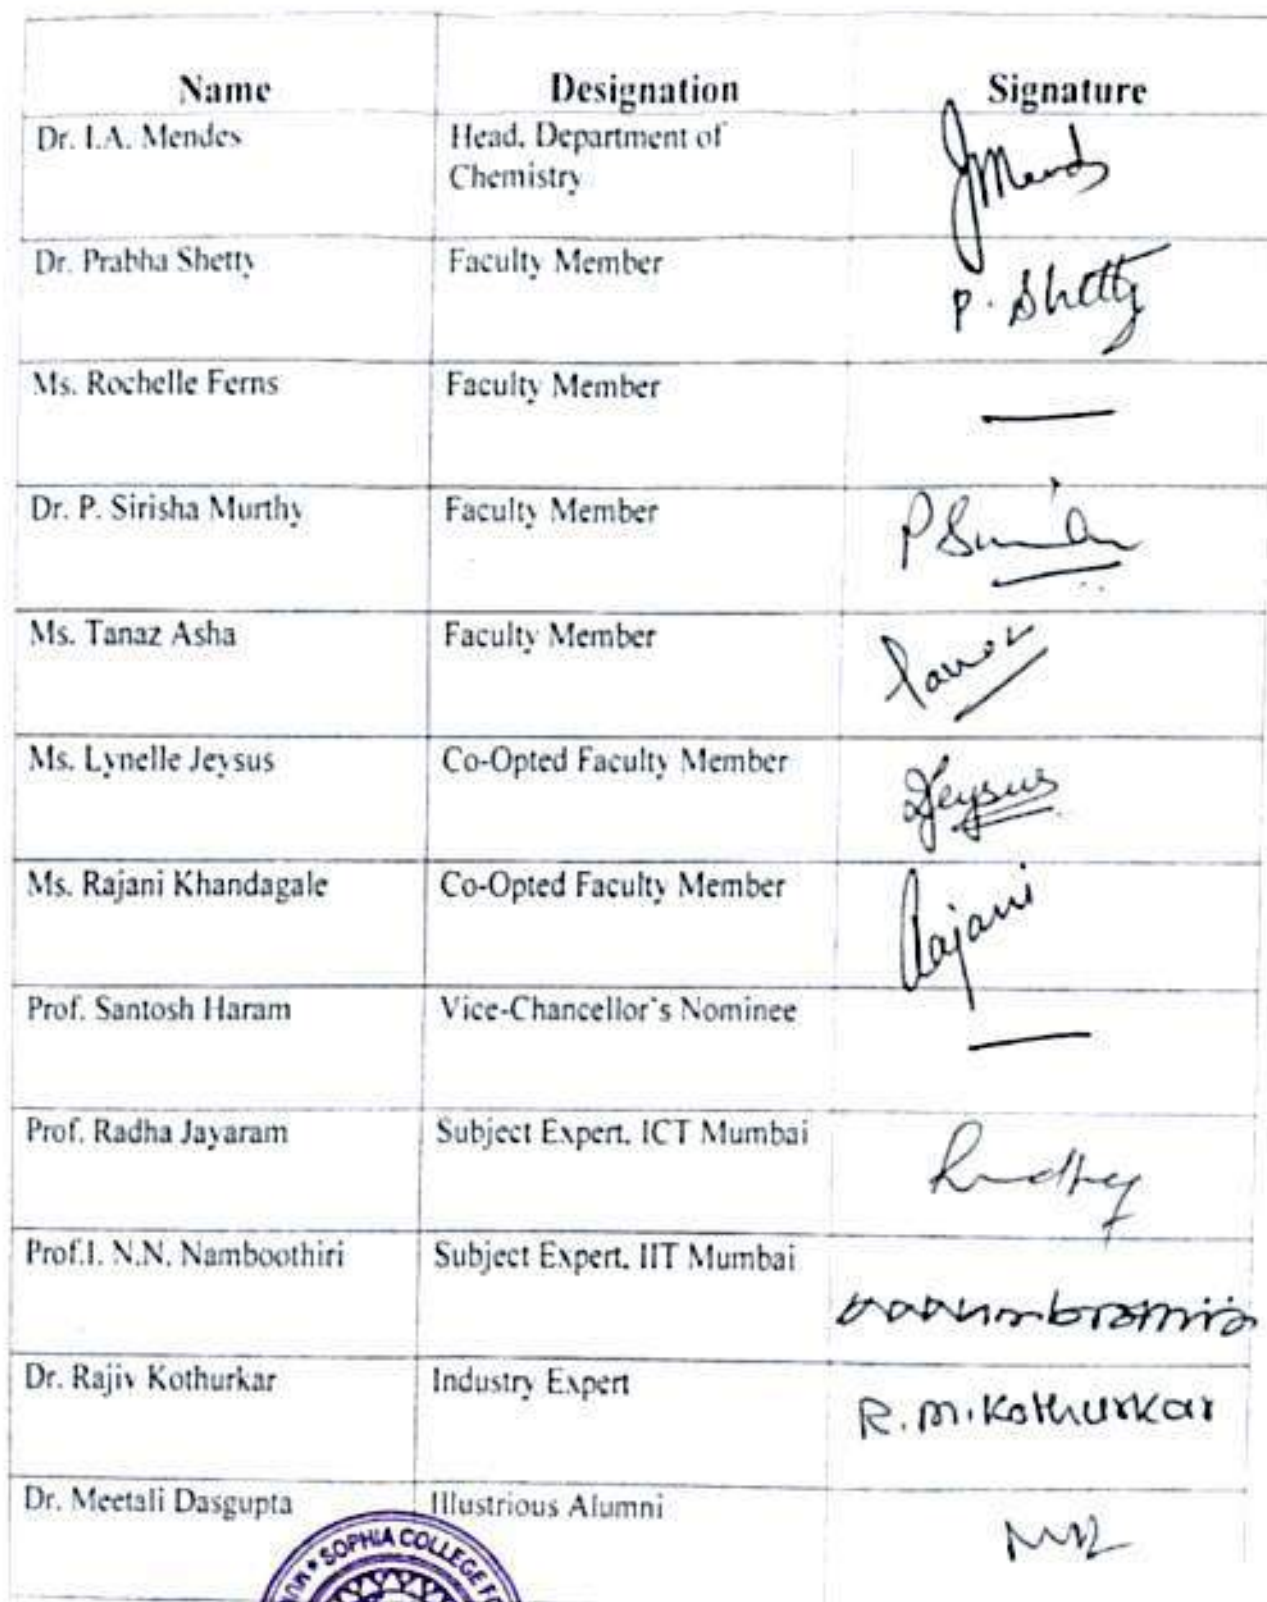 Name Designation Signature
Dr. I.A. Mendes Head, Department of
Chemistry
Dr. Prabha Shetty Faculty Member
P. Shetty
Ms. Rochelle Ferns Faculty Member
Dr. P. Sirisha Murthy Faculty Member
Ms. Tanaz Asha Faculty Member
Ms. Lynelle Jeysus Co-Opted Faculty Member
Jeysus
Ms. Rajani Khandagale Co-Opted Faculty Member
Rajani
Prof. Santosh Haram Vice-Chancellor's Nominee
Prof. Radha Jayaram Subject Expert, ICT Mumbai
Prof.I. N.N. Namboothiri Subject Expert, IIT Mumbai
Dr. Rajiv Kothurkar Industry Expert
R. M. Kothurkar
Dr. Meetali Dasgupta Illustrious Alumni
SOPHIA COLLEGE